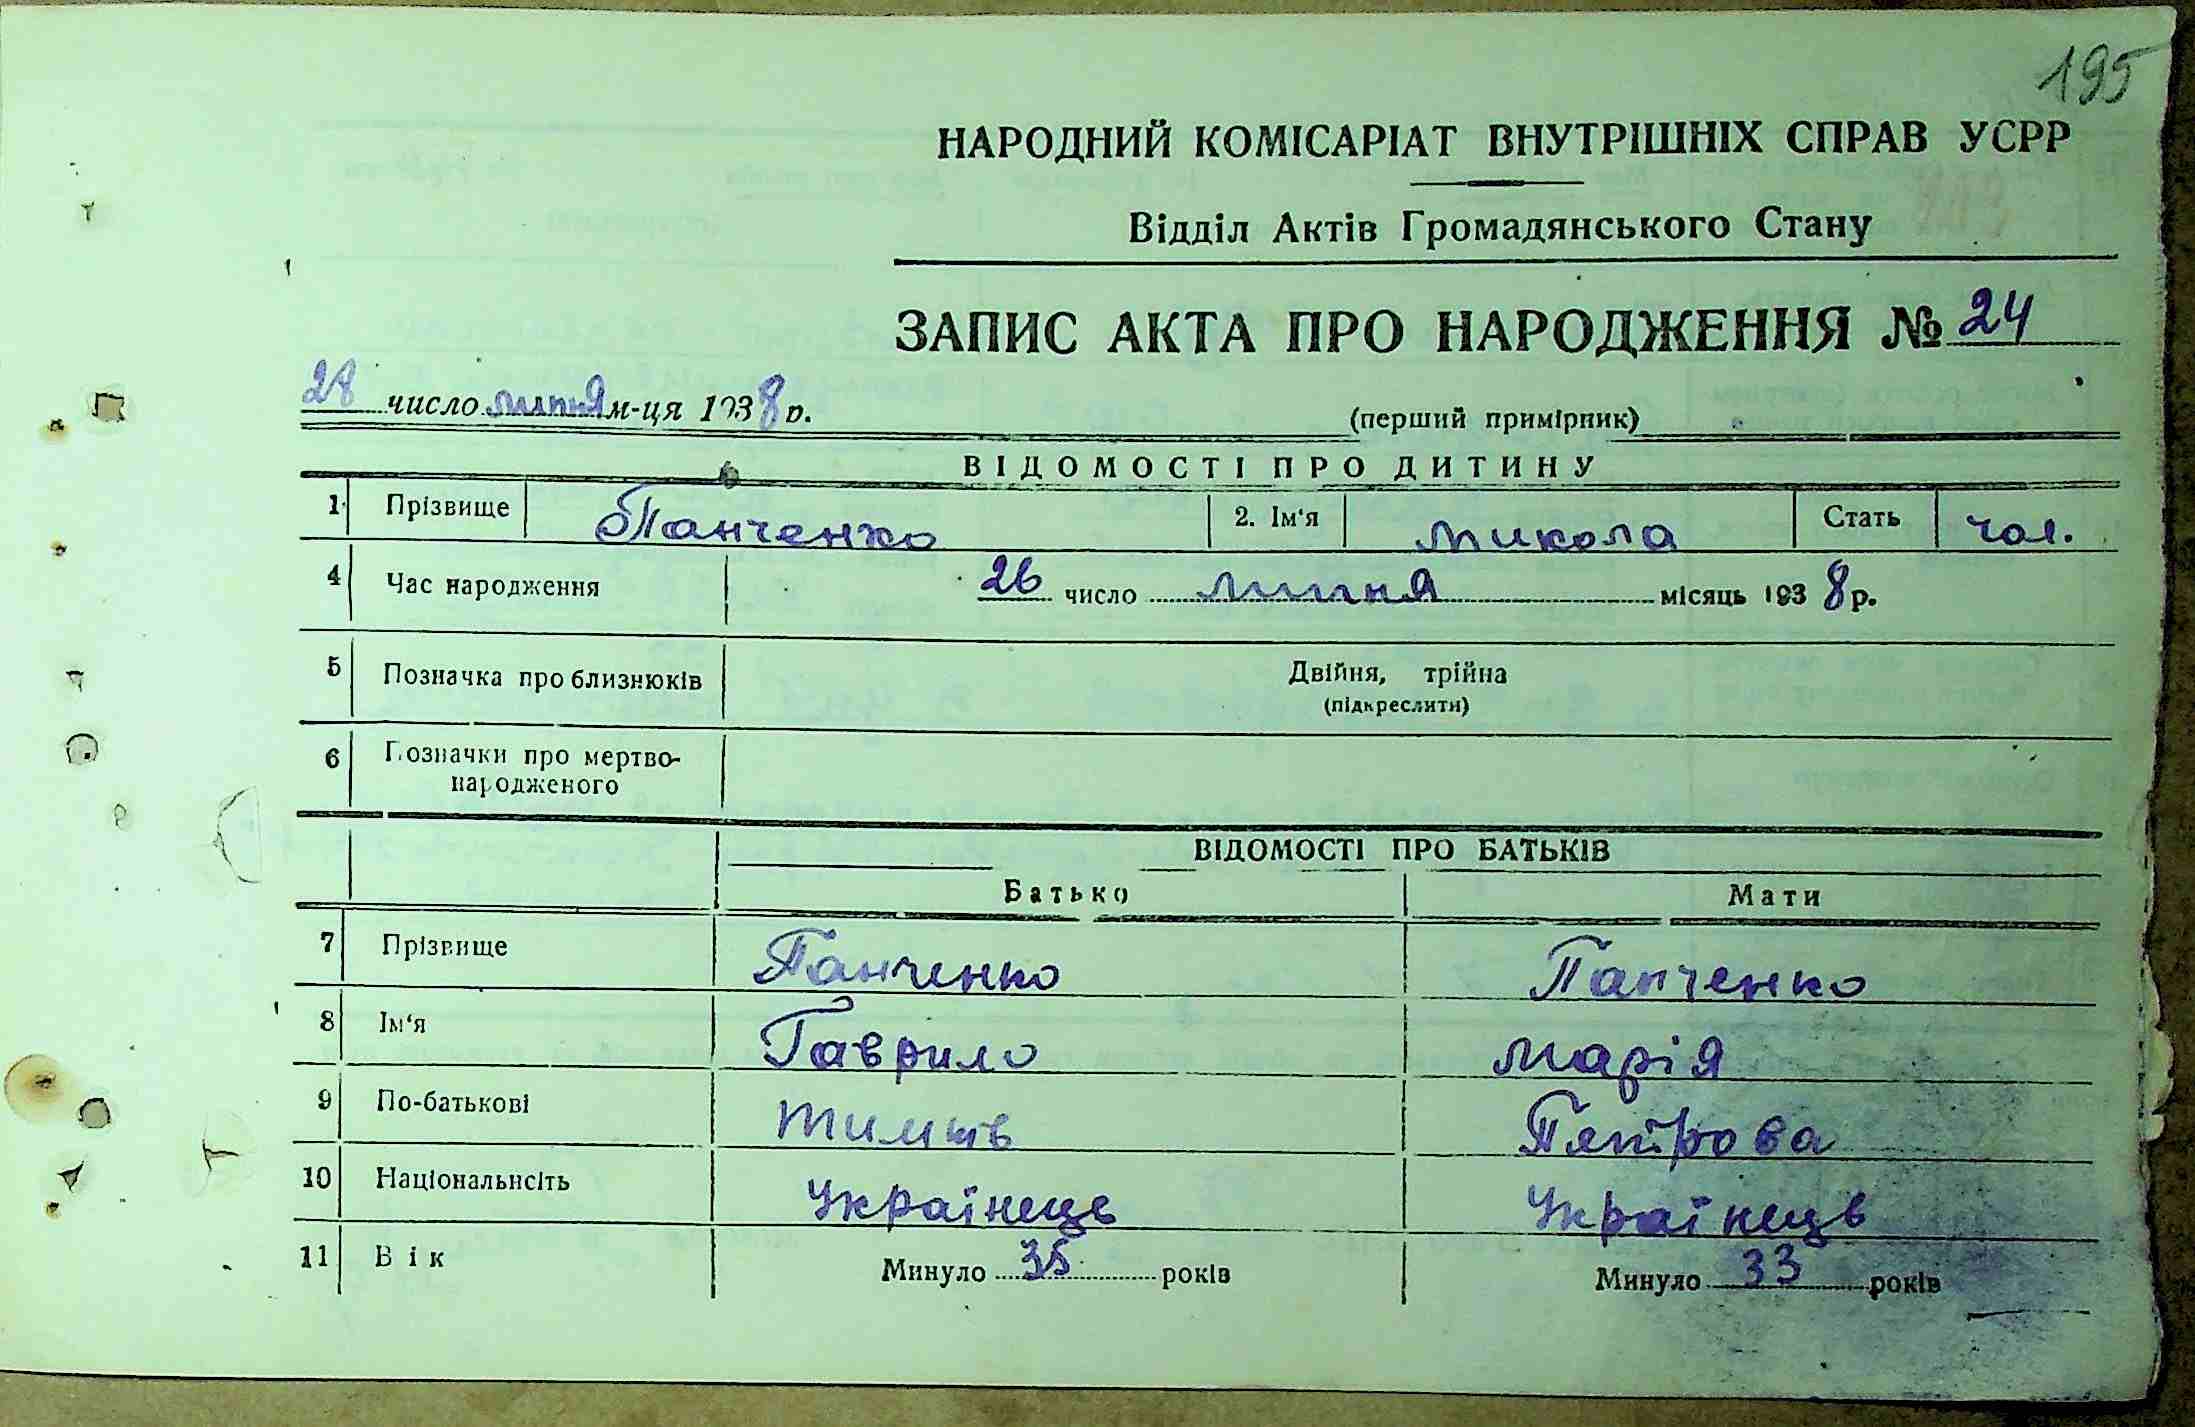 195
НАРОДНИЙ КОМІСАРІАТ ВНУТРІШНІХ СПРАВ УСРР
Відділ Актів Громадянського Стану
ЗАПИС АКТА ПРО НАРОДЖЕННЯ № 24
28 число липня м-ця 1938 р.
(перший примірник)
ВІДОМОСТІ ПРО ДИТИНУ
1 Прізвище Панченко 2. Ім'я Микола Стать чол.
4 Час народження 26 число липня місяць 1938 р.
5 Позначка про близнюків Двійня, трійна
(підкреслити)
6 Позначки про мертво-
народженого
ВІДОМОСТІ ПРО БАТЬКІВ
Батько Мати
7 Прізвище Панченко Панченко
8 Ім'я Гаврило Марія
9 По-батькові Пятрова
10 Національність Українець Українець
11 Вік Минуло 35 років Минуло 33 років